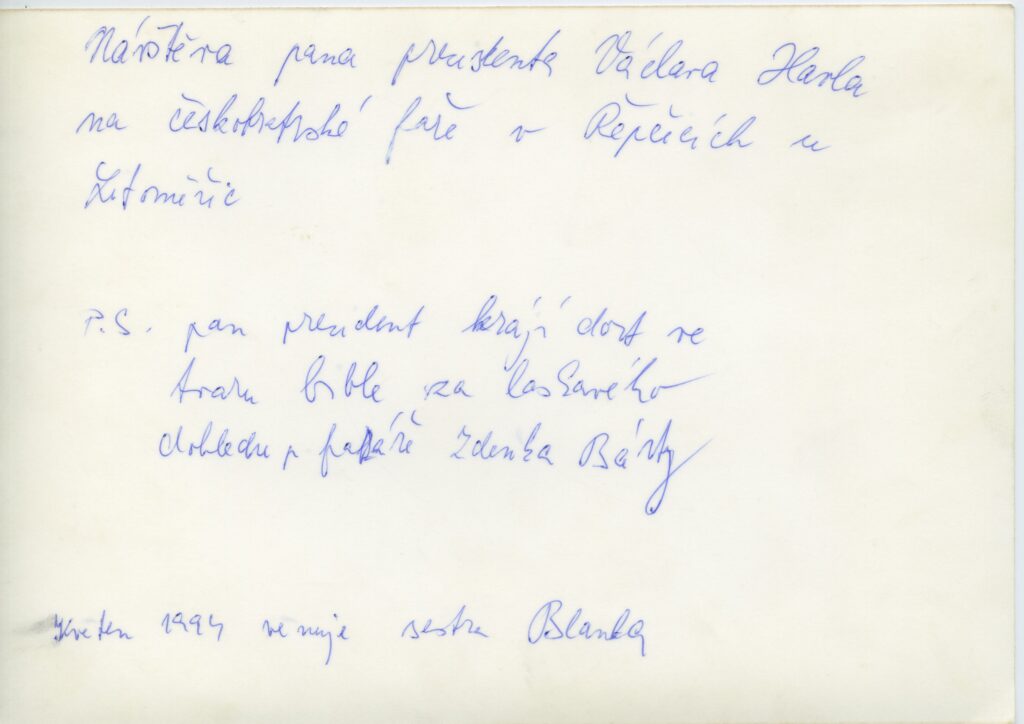 Návštěva pana presidenta Václava Havla
na českobratrské faře v Řepčicích u
Litoměřic
P.S. pan president krájí dort ve
tvaru bible za laskavého
dohledu p faráře Zdenka Bárty
Květen 1994 venuje sestra Blanka